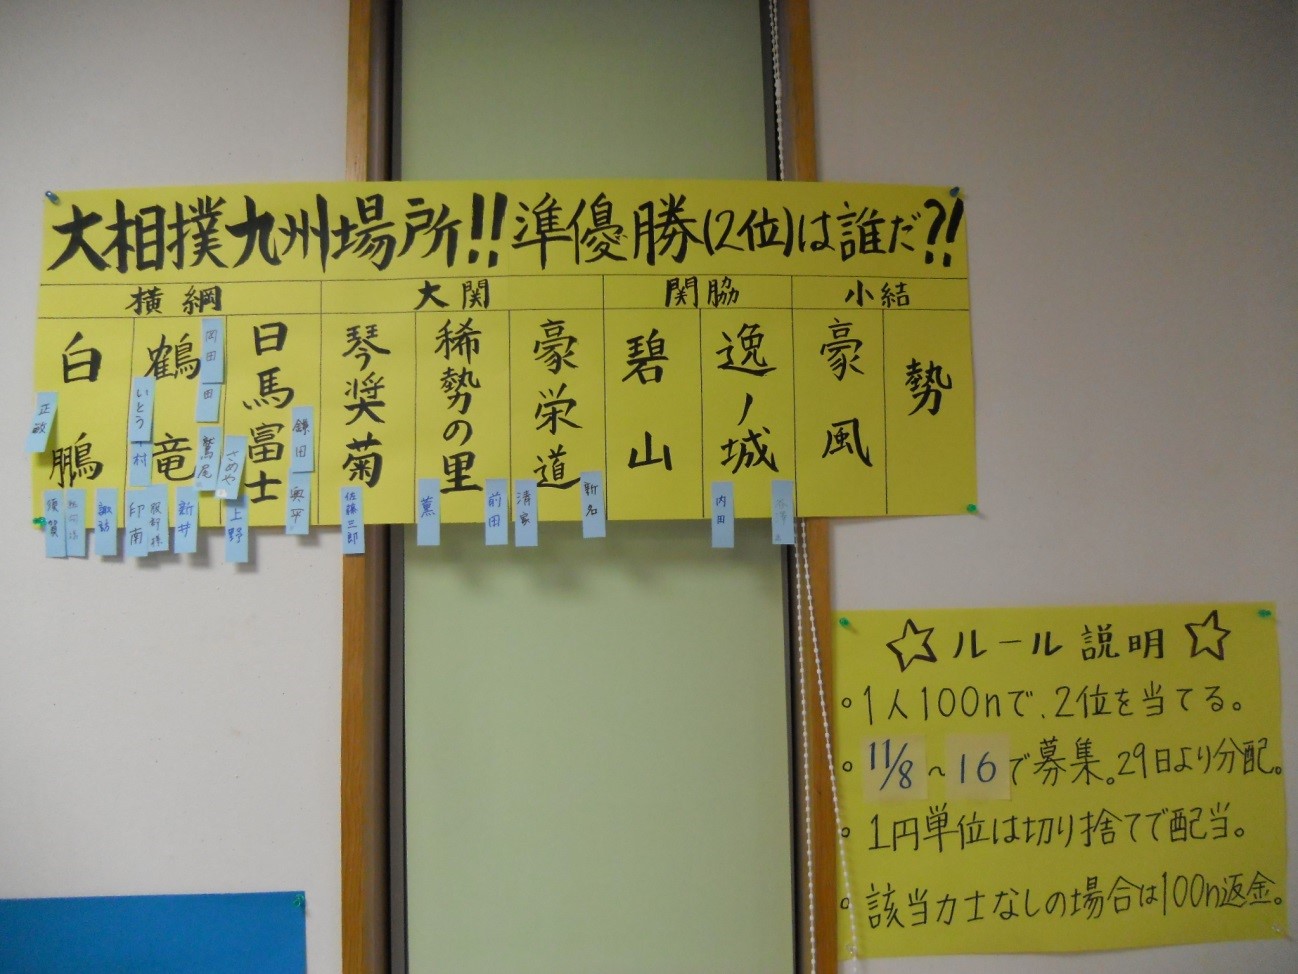 大相撲九州場所!!準優勝(2位)は誰だ?!
横綱 大関 関脇 小結
白鵬
鶴竜
日馬富士
琴奨菊
稀勢の里
豪栄道
碧山
逸ノ城
豪風
勢
正敏
いとう
村
岡田
田
鷲尾
さめや
鎌田
興平
須賀
諏訪
印南
服部様
新井
上野
佐藤三郎
薫
前田
清家
新名
内田
☆ルール説明☆
。1人100nで、2位を当てる。
。11/8~16で募集。29日より分配。
。1円単位は切り捨てで配当。
。該当力士なしの場合は100n返金。